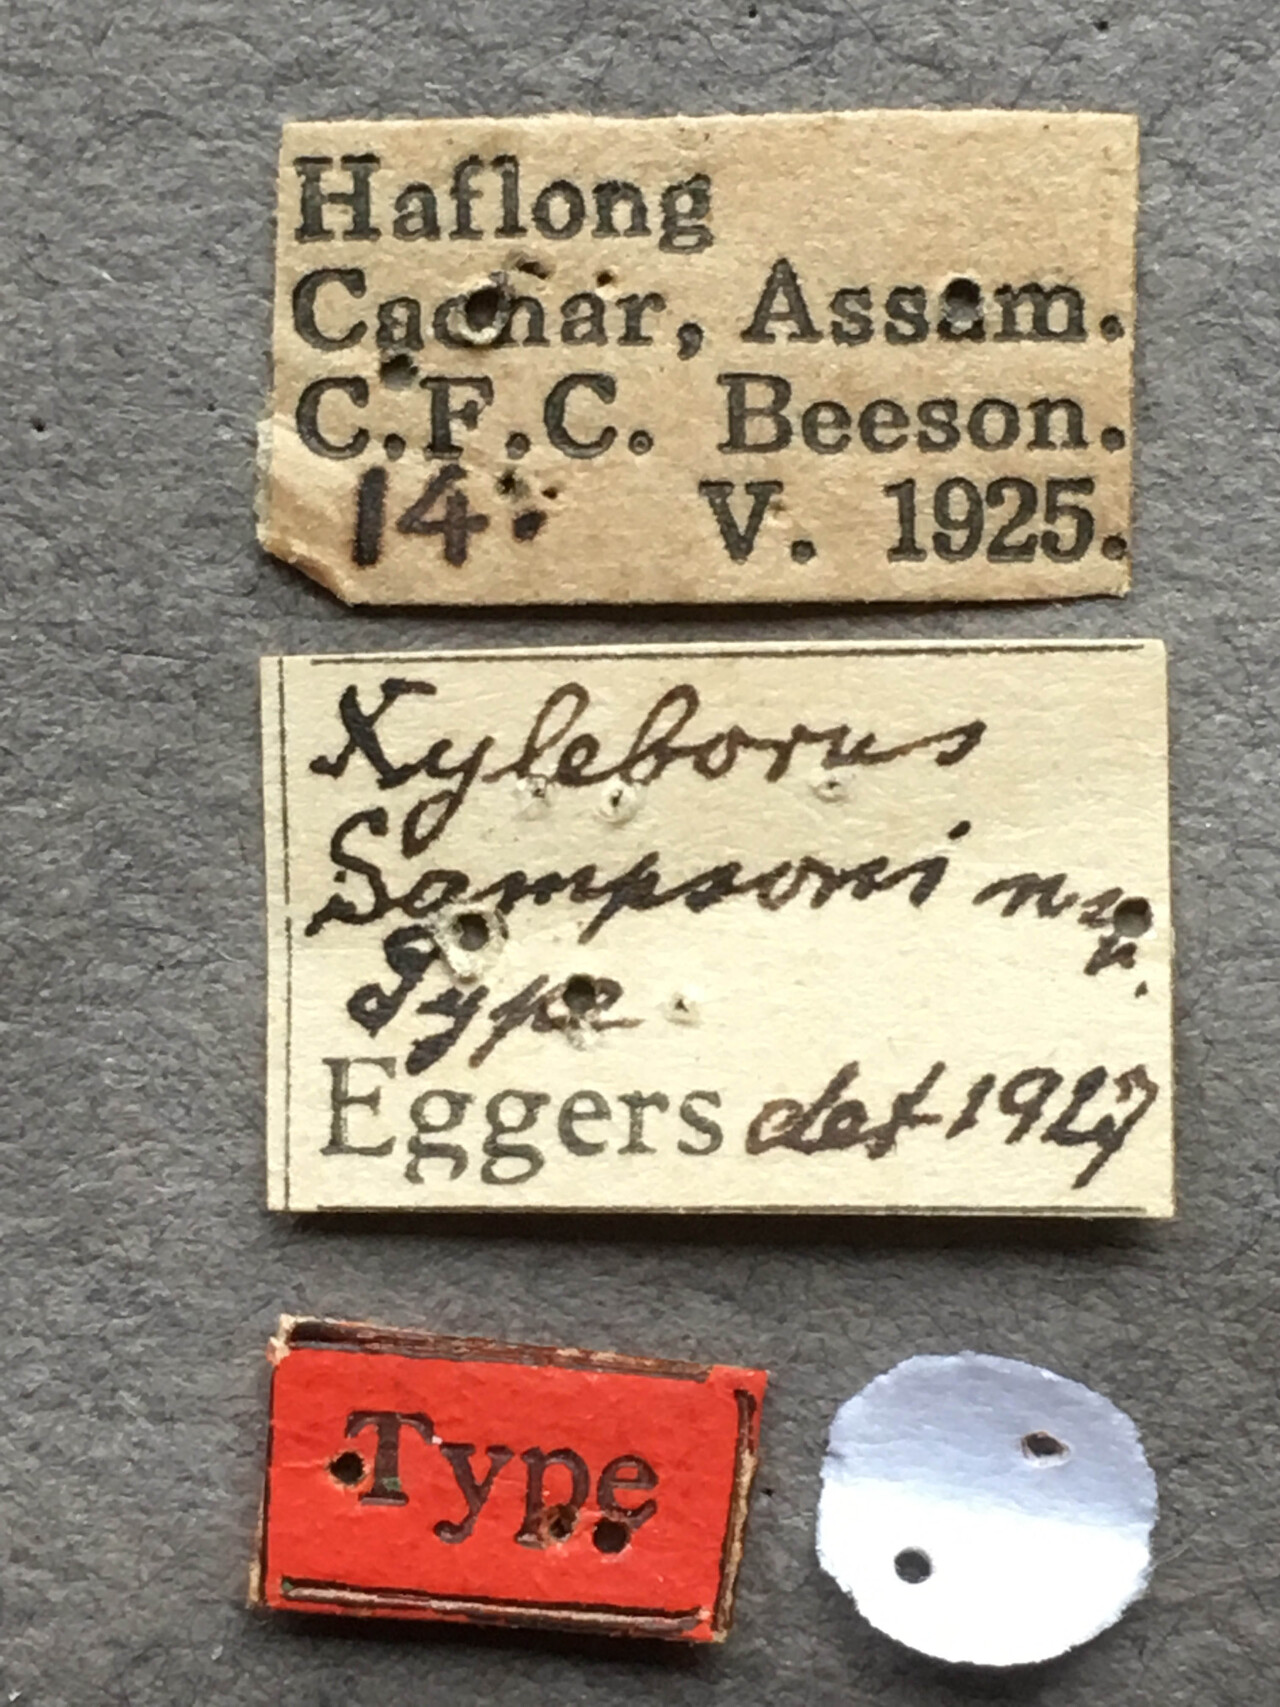 Haflong
Cachar, Assam.
C.F.C. Beeson.
14. V. 1925.
Xyleborus
Sampsoni
Type
Eggers det 1927
Type